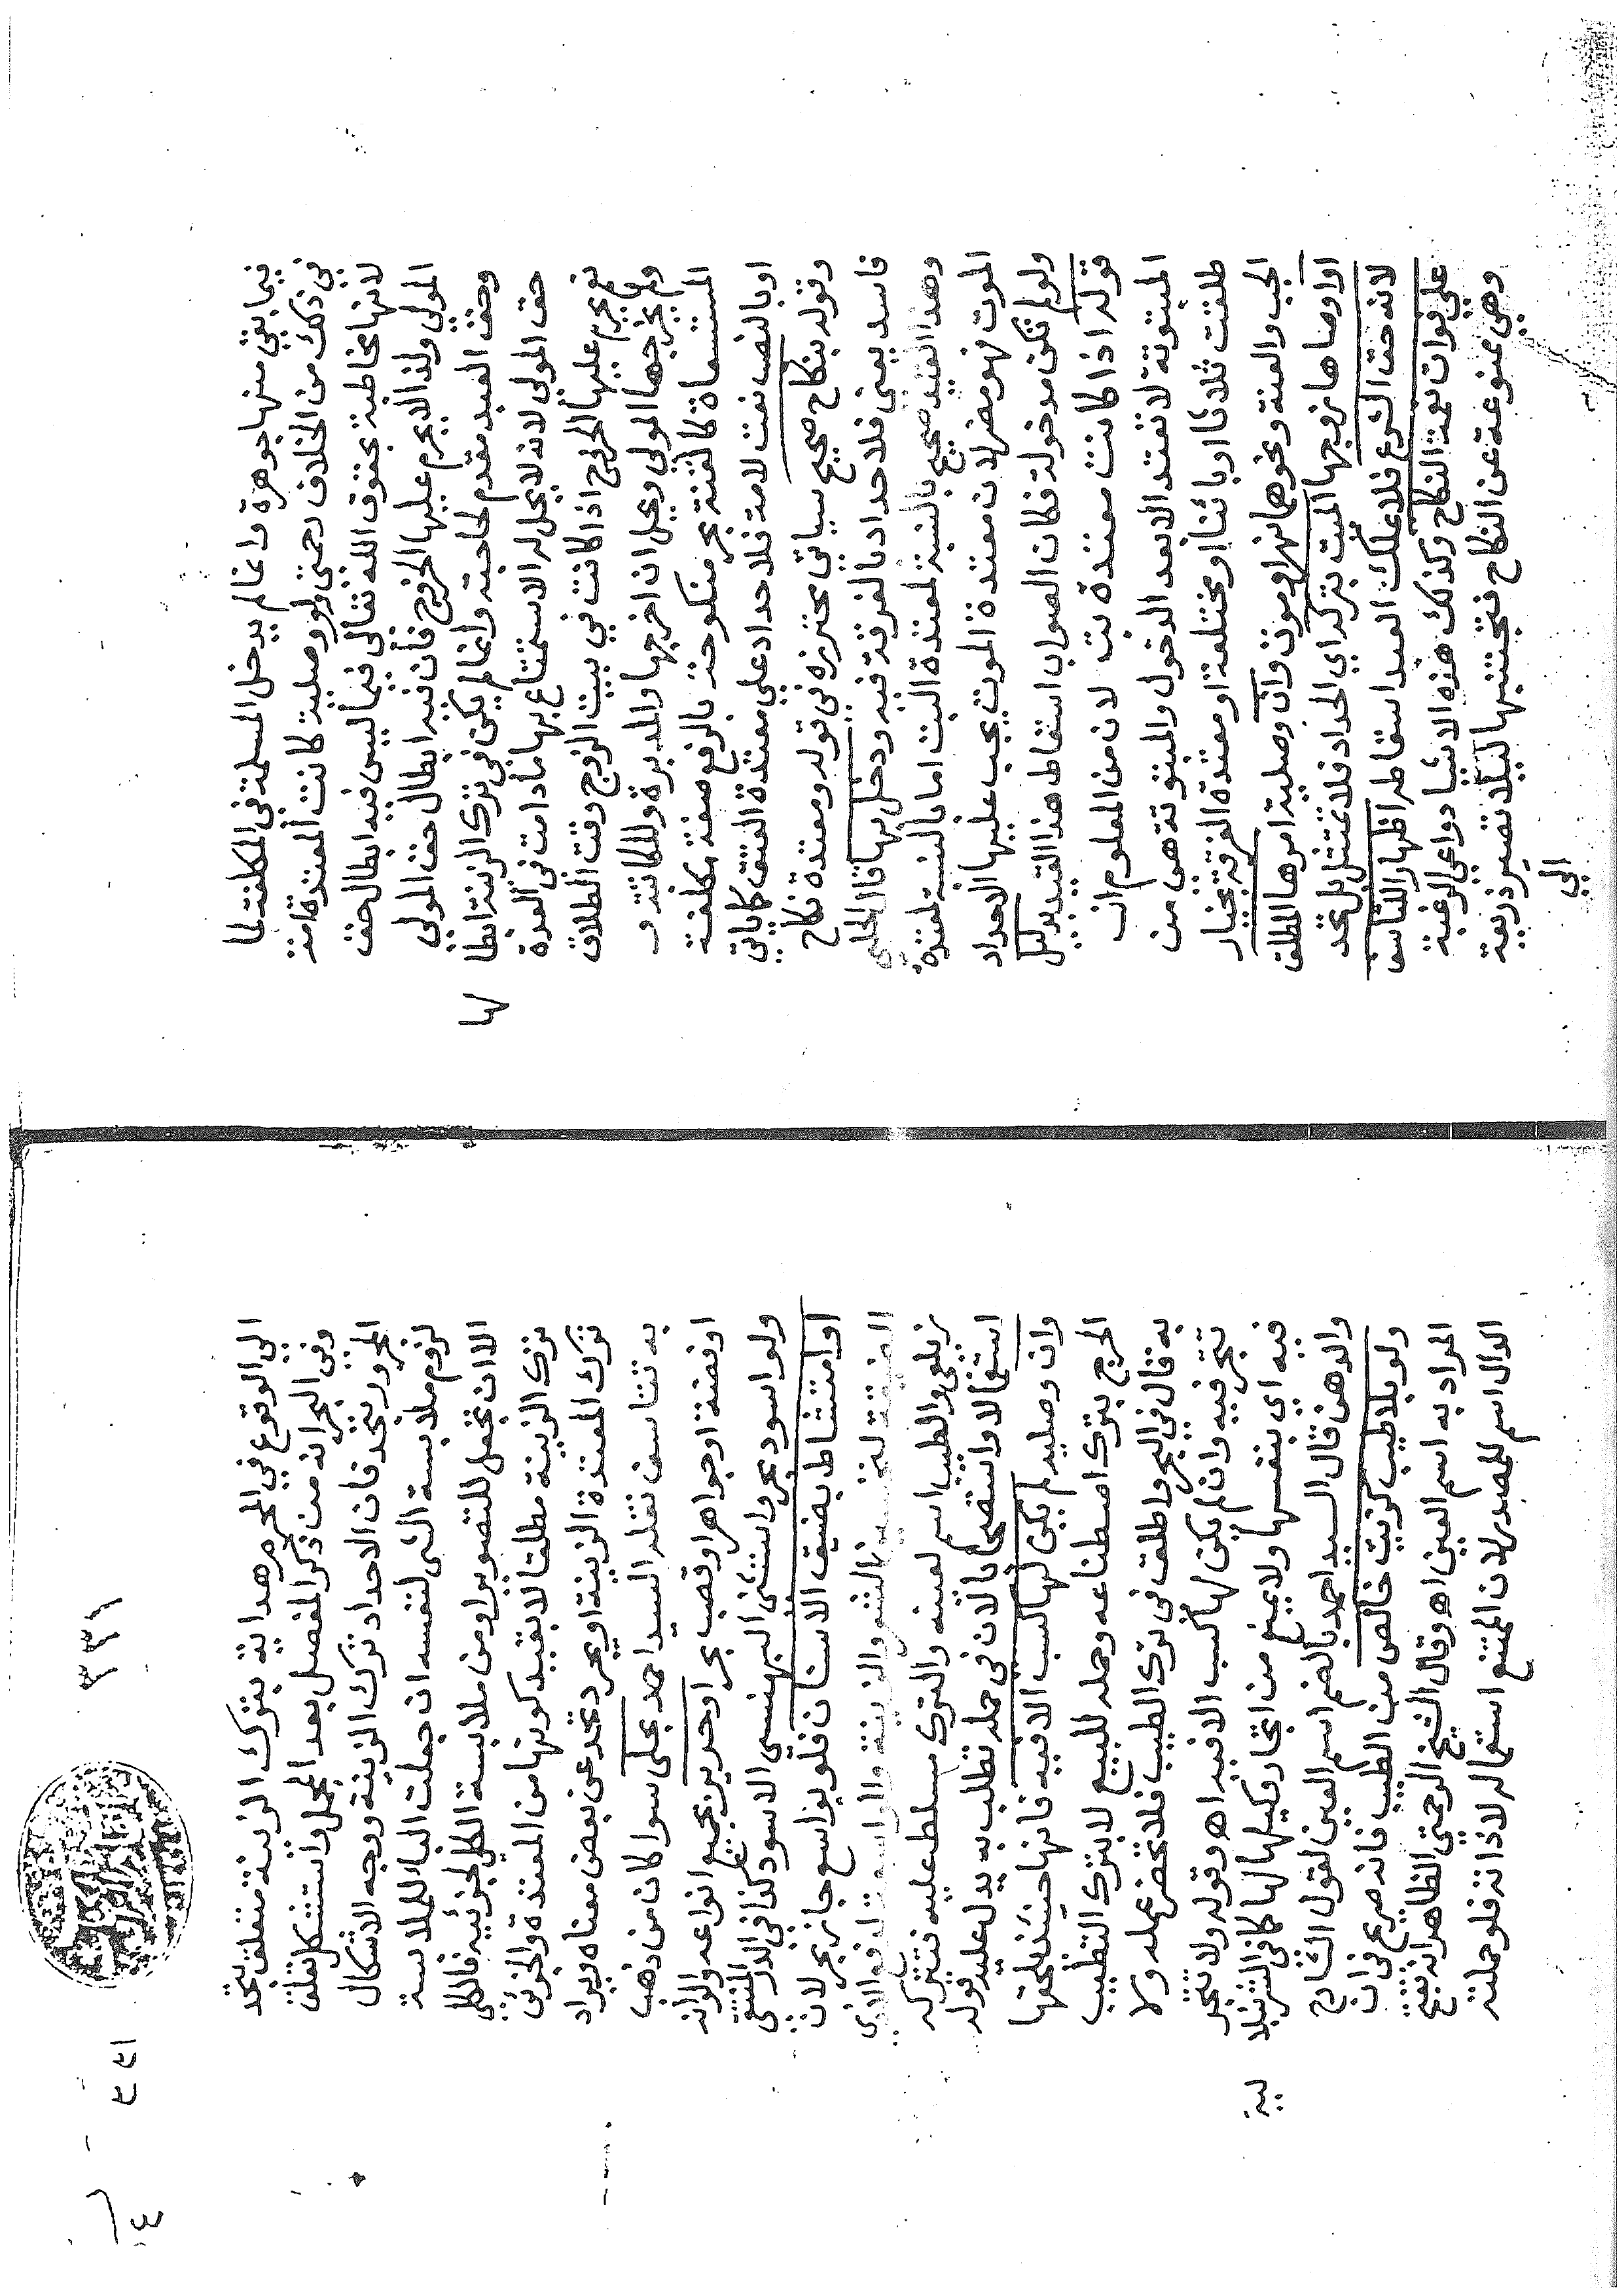 فيما بقي منها جوهرة وانما لم يدخل المسلمة في المكلفة لما
في ذلك من الخلاف رحمتي ولو وصلية كانت المعتدة امة
لانها مخاطبة بحقوق الله تعالى فيما ليس فيه ابطال حق
المولي ولذا لا يحرم عليها الخروج فأن فيه ابطال حق المولي
وحق العبد مقدم لحاجته وانما لم يكن في ترك الزينة ابطا
لها
حق المولي لانه لا يحل له الاستمتاع بها مادامت في العدة
نعم يحرم عليها الخروج اذا كانت في بيت الزوج وقت الطلاق
ولم يخرجها المولي ويحل ان اخرجها والمدبرة والمكاتبة و
المستسعاة كالقنة بحر منكوحة بالرفع صفة مكلفة
او بالنصب نعت لامة فلا حداد علي معتدة العتق كما ياتي
وقوله بنكاح صحيح سياتي محترزه في قوله ومعتدة نكاح
فاسد يعني فلا حداد بالفرقة فيه ودخل بها قال الحلبي
وهذا القيد صحيح بالنسبة لمعتدة البت اما بالنسبة لمعتدة
الموت فهو مضر لان معتدة الموت يجب عليها الاحداد
ولو لم تكن مدخولة فكان الصواب اسقاط هذا القيد بدليل
قوله اذا كانت معتدة بت لان من المعلوم ان
المبتوتة لا تعتد الا بعد الدخول والمبتوتة هي من
طلقت ثلاثا او بائنا او مختلعة او معتدة الفرقة بخيار
الجب والعنة ونحوهما نهر او موت وان وصلية امرها المطلق
او اوصاها زوجها الميت بتركه اي الحداد فلا تمتثل بل تحد
لانه حق الشرع فلا يملك العبد اسقاطه اظهارا للتاسف
علي فوات نعمة النكاح وكذلك هذه الاشيا دواعي الرغبة
وهي ممنوعة عن النكاح فتجتنبها ليلا تصير ذريعة
الي
٣٣٩
٤٤١
الي الوقوع في المحرم هداية بترك الزينة متعلق بتحد
وفي البحر انه من ذكر المفصل بعد المجمل واستشكل تعلق
المجرور بتحد فان الاحداد ترك الزينة ووجه الاشكال
لزوم ملابسة الشي لنفسه ان جعلت البا للملابسة
الا ان تجعل للتصوير او من ملابسة الكلي لجزئيه فالكلي
ترك الزينة مطلقا لا بقيد كونها من المعتدة والجزئي
ترك المعتدة الزينة او يجرد تحد عن بعض معناه ويراد
به تتاسف نقله السيد احمد بحلي سوا كان من ذهب
او فضة او جواهر او قصب بحر او حرير بجميع انواعه والوانه
ولو اسود بحر واستثنى البهنسي الاسود كذا في الدر المنتقى
او امتشاط بضيق الاسنان فلو بواسع جاز بحر لان
زيلعي والطيب اسم لعينه والترك مسلط عليه فتتركه
استعمالا واستصحابا لان في حمله تطلب به يدل عليه قوله
وان وصلية لم يكن لها كسب الا فيه فانها حينئذ يلحقها
الحرج بترك اصطناعه وحمله للبيع لا بترك التطيب
به قال في البحر واطلق في ترك الطيب فلا تحضر عمله ولا
تتجر فيه وان لم يكن لها كسب الا فيه اهـ وقوله ولا تتجر
فيه اي بنفسها ولا يمنع من اتجار وكيلها لها كما في الشرنبلا
لية
والدهن قال السيد احمد بالضم اسم العين لقول الشارح
ولو بلا طيب كزيت خالص من الطيب فانه صريح في ان
المراد به اسم العين اهـ وقال الشيخ الرحمتي الظاهر انه بفتح
الدال اسم للمصدر لان الممتنع استعماله لا ذاته فلو حملته